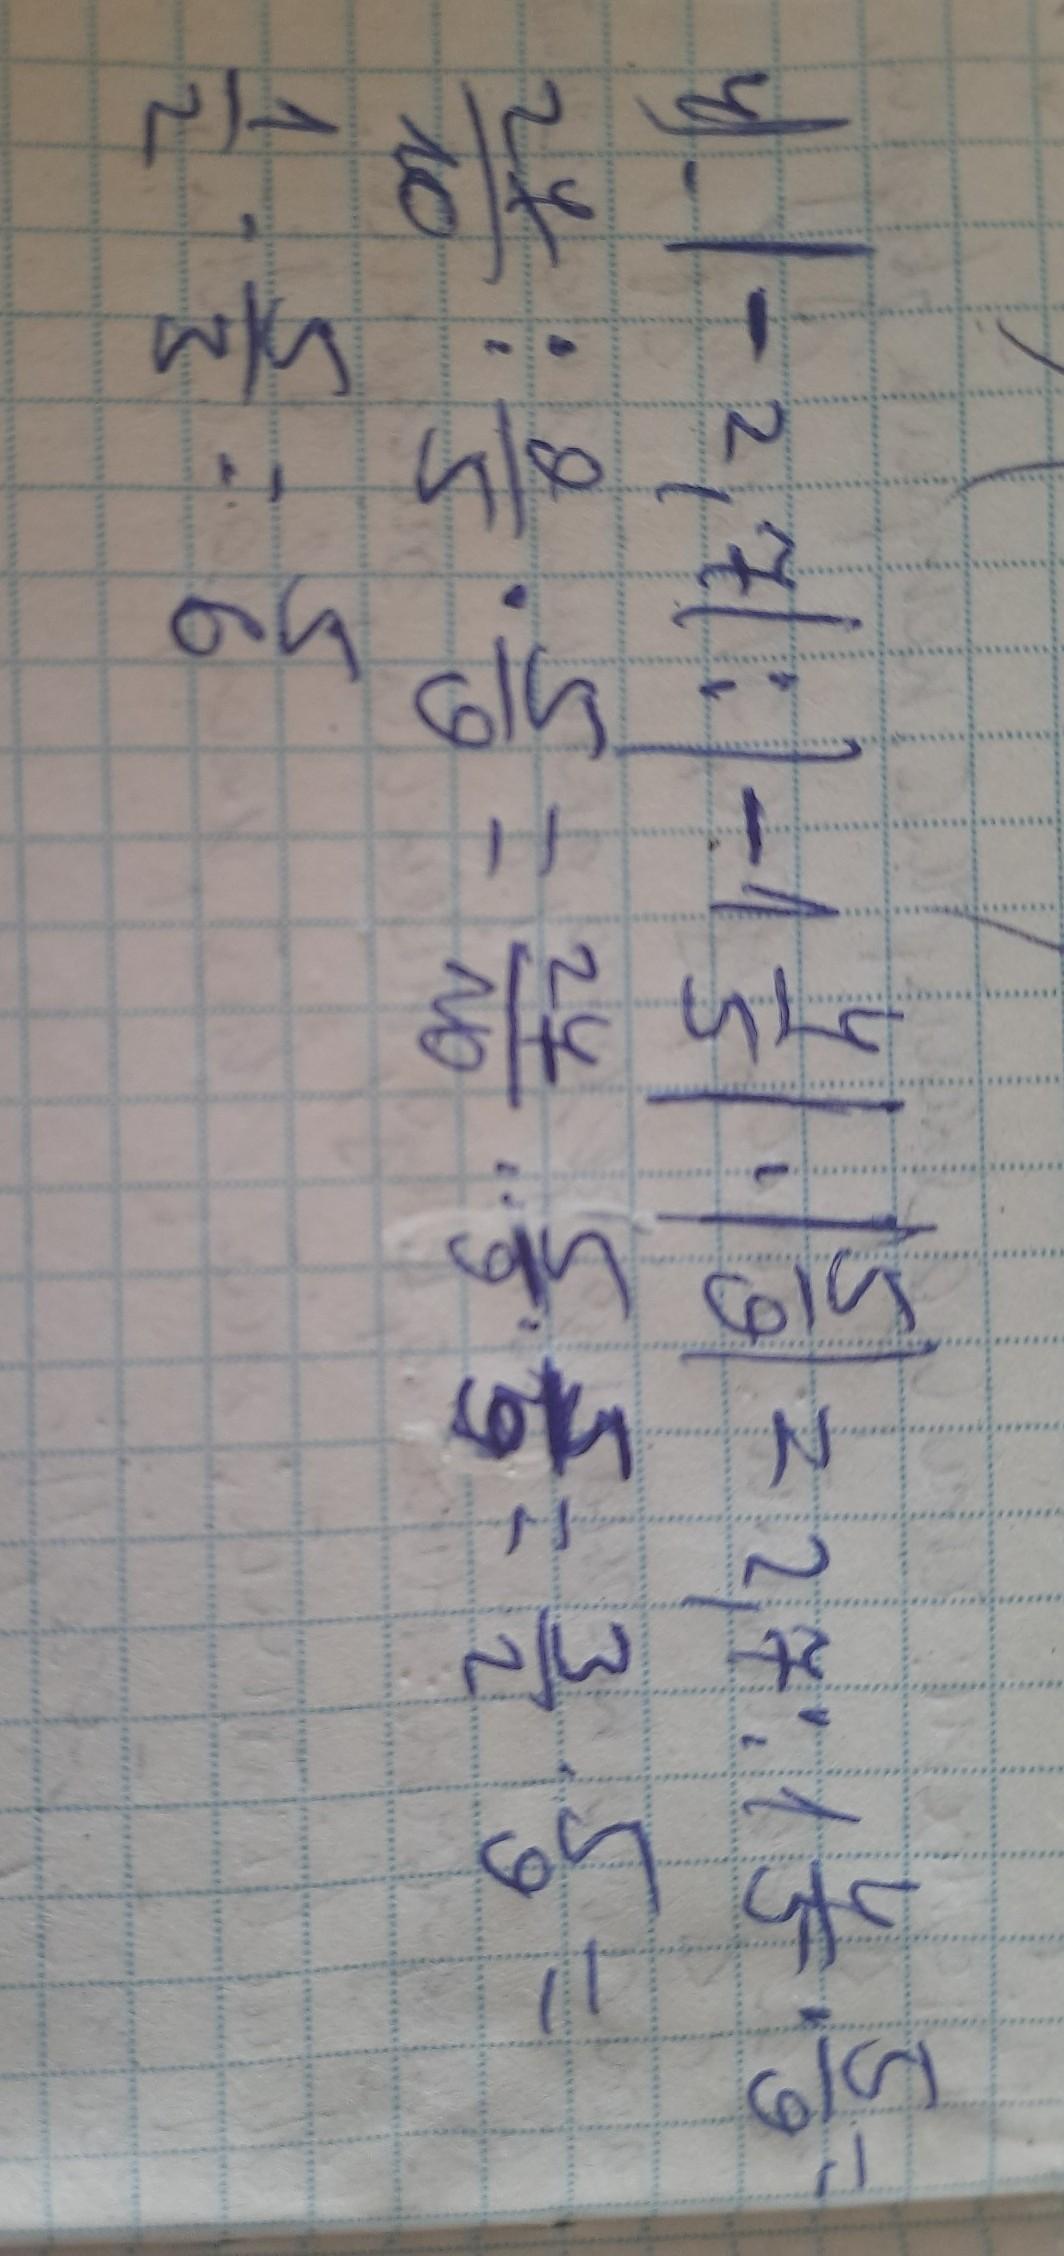 4) |-2,7| : |-1 4/5| · |5/9| = 2,7 : 1 4/5 · 5/9 =
27/10 : 9/5 · 5/9 = 27/10 · 5/9 · 5/9 = 3/2 · 5/9 =
1/2 · 5/3 = 5/6